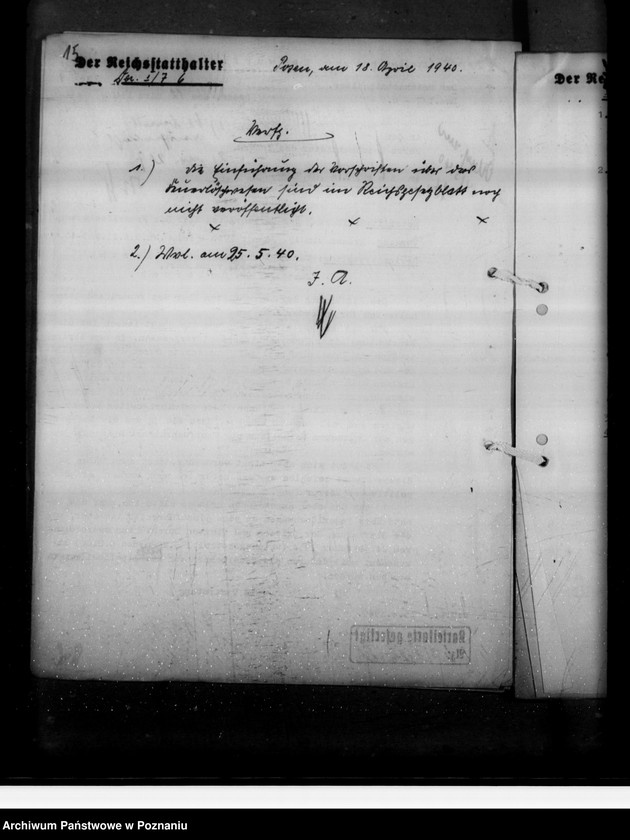 15
Der Reichsstatthalter
Posen, am 18. April 1940.
I/7 6
Verf.
1.) die Einführung der Vorschriften über das
Feuerlöschwesen sind im Reichsgesetzblatt noch
nicht veröffentlicht.
2.) Wvl. am 25.5.40.
I. A.
Der Re
1.
2.
Karteikarte gefertigt
Archiwum Państwowe w Poznaniu